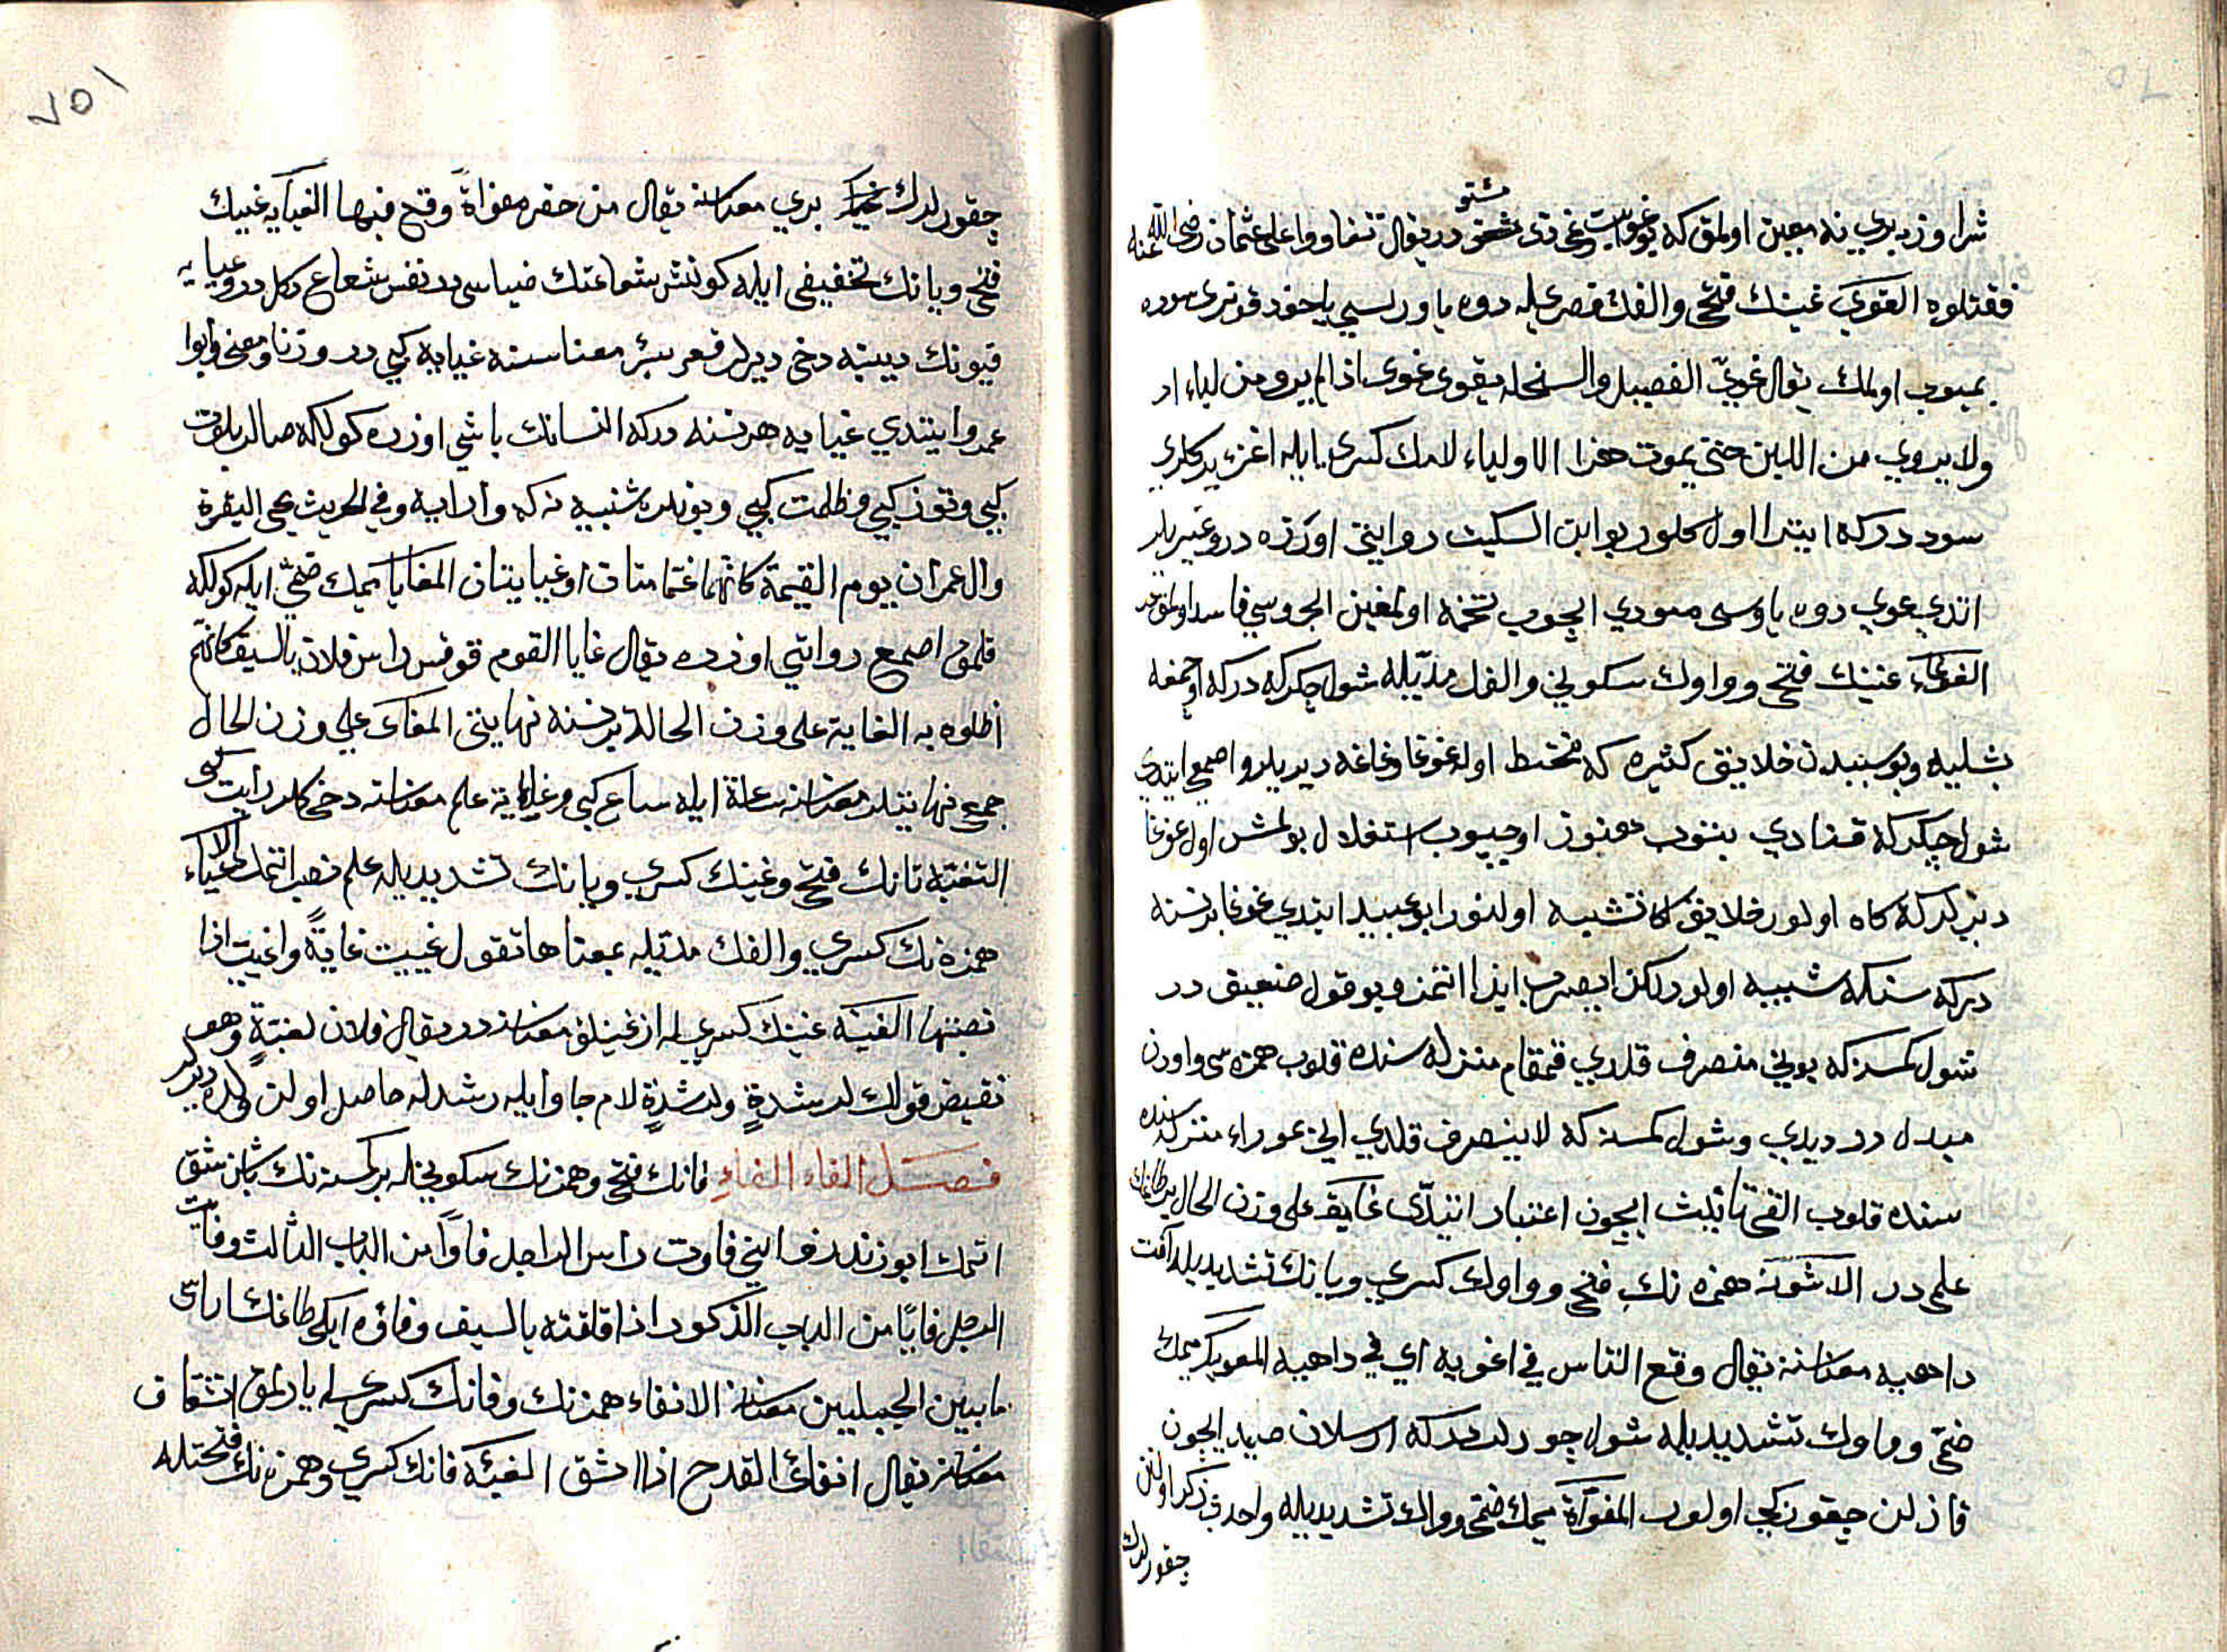 شرا وزيدبري نه معين اولمق كه دريقال تغاووا على عثمان رضى الله عنه
مشتق
فقتلوه الغوي غينك فتحي والفك قصريله دوه ياوريسي ياخود قوزى سوده
يميوب اولمك يقال غوي الفصيل والسخلة يغوى غوى اذا لم يرو من لباء امه
ولا يروي من اللبن حتى يموت هزا الا ولباء لامك كسرى ايله اغز ديدكلرى
سوددركه ابتدا اول كلور بو ابن السكيت روايتى اوزره در وغيريلر
اتدي غوي دوه ياوسى سودي ايچوب تخمه اولمغين اجروسي فاسد اولمقدر
الغوغاء غينك فتحي وواوك سكوني والفك مديله شول چكركه دركه اوچمغه
بشليه وبو سببدن خلايق كثيره كه مختلط اوله غوغا وغاغه ديديلر واصمعي ايتدي
شول چكركه قنادي بتوب دهنوز اوچيوب استقلال بولمش اول غوغا
ديرلر كه كاه اولور خلايق اكا تشبيه اولنور ابو عبيد ايتدي غوغا بر نسنه
دركه سنكه شبيه اولور لكن ايصروب ايذا اتمز وبو قول ضعيق در
شول كمسنه كه بوني منصرف قلدي قمقام منزله سنده قلوب همزه سى واودن
مبدل در ديدي وشول كمسنه كه لا ينصرف قلدي اني عوراء منزله سنده
سنده قلوب الفي تأنيث ايچون اعتبار اتدى غايقه على وزن الحال بر طاغك
علمى در الاغوية همزه نك فتحى وواوك كسري ويا نك تشديديله آفت
داهيه معناسنه يقال وقع الناس في اغوية اي في داهية المغوي كر ميمك
ضمى وواوك تشديديله شول چورلدركه ارسلان صيد ايچون
قازلن چقورنكي اولور المغواة ميمك ضمي وواك تشديديله واحدى ذكر اولنن
چقورلرك
٧٥١
چقورلرك بري معناسنه يقال من حفر مغواة وقع فيها الغياية غينك
فتحي ويا نك تخفيفى ايله كونش شعاعنك ضياسى در نفس شعاع دكلدر وغيايه
قيونك ديبنه دخى ديرلر قعر بئر معناسنه غيابه كبي در وزنا ومعنى وابوا
عمرو ايتدي غيايه هر نسنه دركه انسانك باشي اوزره كولكه صالر بلوت
كبي وتوز كبي وظلمت كبي وبونلره شبيه نه كه وارايسه وفي الحديث تجى البقرة
وال عمران يوم القيمة كانهما غمامتان او غيايتان المغايا ميمك ضمي ايله كولكه
قلمق اصمعي روايتي اوزره يقال غايا القوم فوق راس فلان بالسيف كانهم
اظلوه به الغاية على وزن الحالة بر نسنه نهايتى المغاى على وزن الحال
جمعي نهايتلر معناسنه ساعة ايله ساع كبى وغايه علم معناسنه دخى كلور رأيت كبى
التغية تا نك فتحي وغينك كسري ويا نك تشديديله علم نصب اتمك الاغياء
همزه نك كسري والفك مديله بمعناها تقول غييت غاية واغييت اذا
نصبتها الغية غينك كسريله ازغينلق معناسنه در يقال فلان لغية وهو
نقيض قولك لرشدة ولرشدة لام جار ايله رشدله حاصل اولن ولده ديرلر
فصل الفاء الفاء فا نك فتحي وهمزه نك سكونيله بر كمسنه نك باشن شق
اتمك ابو زيد روايتي فاوت راس الرجل فأوا من الباب الثالث وفأيت
الرجل فأيا من الباب المذكور اذا فلقته بالسيف وفأوه ايكى طاغك اراسى
ما بين الجبلين معناسنه الانفاء همزه نك وفا نك كسريله يارلمق انشقاق
معناسنه يقال انفأى القدح اذا انشق الفئة فا نك كسري وهمزه نك فتحيله